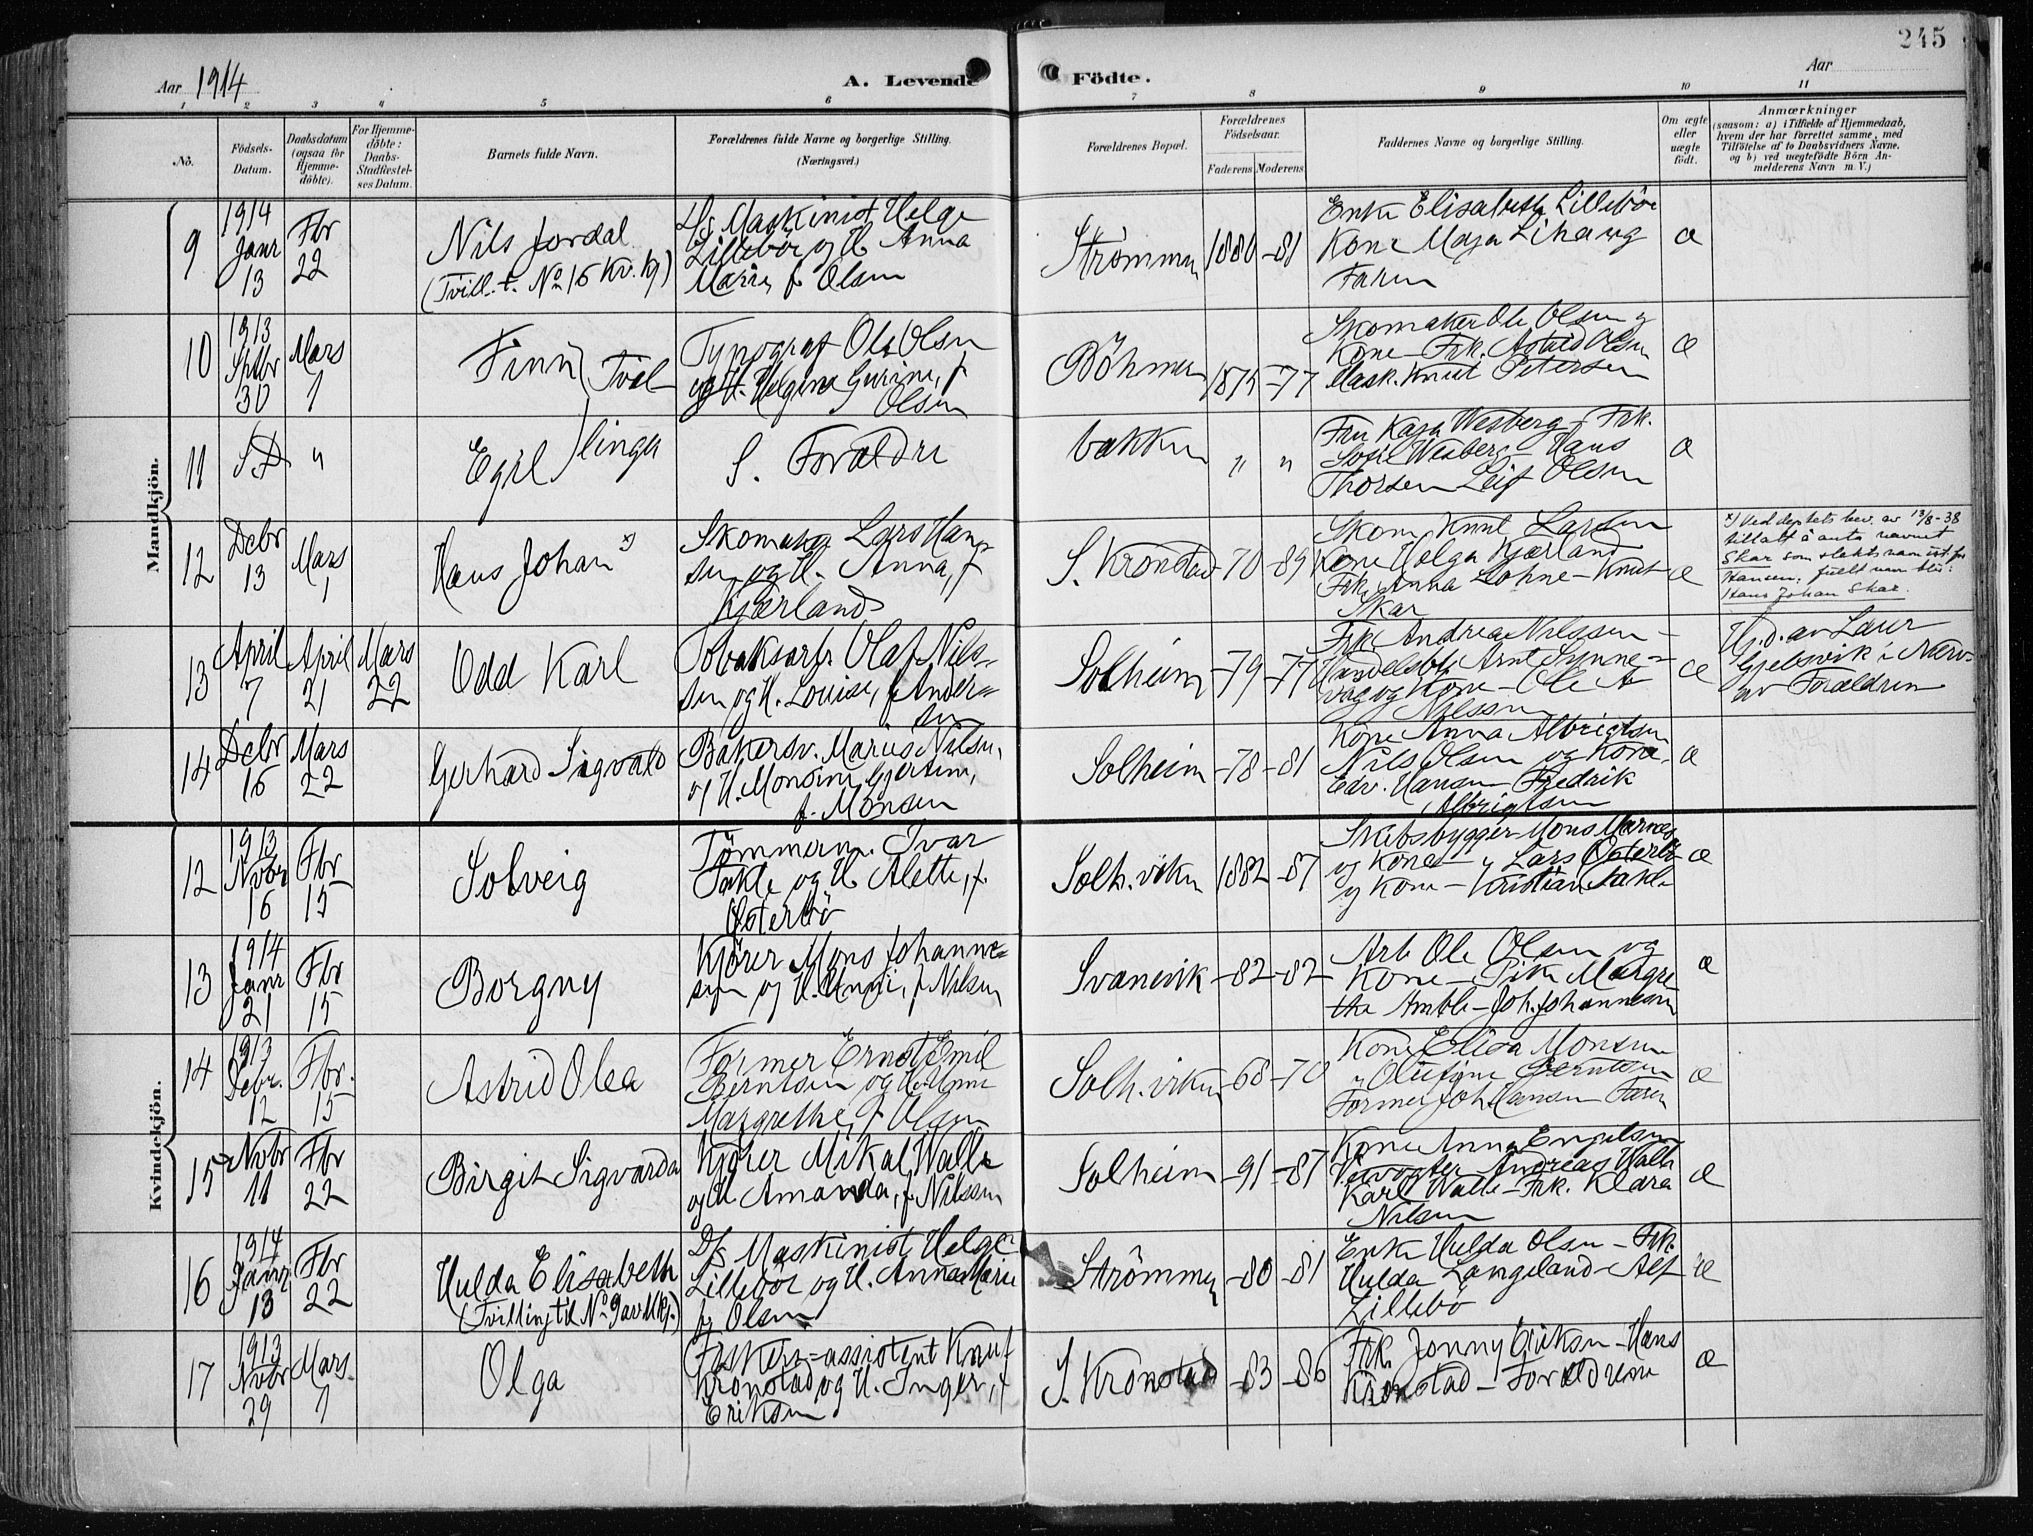 245
Aar 1914
A. Levende Fødte.
Aar
1 2 3 4 5 6 7 8 9 10 11
No.
Födsels-Datum.
Daabsdatum (ogsaa for Hjemme-döbte).
For Hjemme-döbte: Daabs-Stadfæstel-ses Datum.
Barnets fulde Navn.
Forældrenes fulde Navne og borgerlige Stilling.
(Næringsvei.)
Forældrenes Bopæl.
Forældrenes Födselsaar.
Faderens Moderens
Faddernes Navne og borgerlige Stilling.
Om ægte eller uægte födt.
Anmærkninger
(saasom: a) i Tilfælde af Hjemmedaab,
hvem der har forrettet samme, med
Tilföielse af to Daabsvidners Navne.
og b) ved uegtefödte Börn An-
melderens Navn m. V.)
Mandkjön.
9
1914 Janr 13
Fbr 22
Nils Jordal
(Tvill. t. No 16 Kv. kj)
D/s Maskinist Helge
Lillebö og H. Anna
Marie f. Olsen
Strømmen 1880 -81
Enke Elisabeth Lillebö
Kone Maja Lihaug
Faren
æ
10
1913 Septbr 30
Mars 1
Finn } Tvil-
Typograf Ole Olsen
og H. Helgine Gurine, f.
Olsen
Böhmer 1875 -77
Skomaker Ole Olsen og
Kone - Frk. Astrid Olsen
Mask. Knut Petersen
æ
11
S. D. "
Egil } linger
S. Forældre
bakken " "
Fru Kaja Wesberg - Frk.
Sofie Wesberg - Hans
Thorsen Leif Olsen
æ
12
Debr 13
Mars 1
Hans Johan x)
Skomaker Lars Han-
sen og H. Anna, f.
Kjærland
S. Kronstad -70 -89
Skom. Knut Larsen
Kone Helga Kjærland
Frk. Anna Lohne - Knut
Skar
æ
x) Ved deptets bev. av 13/8-38
tillatt å anta navnet
Skar som slektsnavn ist. for
Hansen; fullt navn blir:
Hans Johan Skar.
13
April 7
April 21
Mars 22
Odd Karl
Tobaksarb. Olaf Nils-
sen og H. Louise, f. Ander-
sen
Solheim -79 -77
Frk. Andrea Nilssen -
Handelsbtj. Arnt Synne-
våg og Kone - Ole A
Nilssen
æ
Hj. d. av Laur
Gjelsvik i Nærv.
av Forældrene
14
Debr 16
Mars 22
Gerhard Sigvald
Bakersv. Marius Nilsen,
og H. Monsine Gjertine,
f. Monsen
Solheim -78 -81
Kone Anna Albrigtsen
Nils Olsen og Kone,
Edv. Hansen - Fredrik
Albrigtsen
æ
Kvindekjön.
12
1913 Novbr 16
Fbr 15
Solveig
Tömmerm. Ivar
Takle og H. Alette, f.
Osterbö
Solh.viken 1882 -87
Skibsbygger Mons Marnes
og Kone - " Lars Osterbö
og Kone - Kristian Takle
æ
13
1914 Janr 21
Fbr 15
Borgny
Kjörer Mons Johanne-
sen og H. Anni, f. Nilsen
Svanevik -82 -82
Arb Ole Olsen og
Kone - Pike Margre
the Amble - Joh. Johannesen
æ
14
1913 Debr. 12
Fbr. 15
Astrid Olea
Former Ernst Emil
Berntsen og H. Anne
Margrethe f. Olsen
Solh.viken -68 -70
Kone Elisa Monsen
" Olufine Berntsen
Former Joh Hansen Faren
æ
15
Novbr 11
Fbr 22
Birgit Sigvarda
Kjörer Mikal Walle
og H Amanda, f. Nilssen
Solheim -91 -87
Kone Anna Engelsen
Veivogter Andreas Walle
Karl Walle - Frk. Klara
Nilsen
æ
16
1914 Janr 13
Fbr 22
Hulda Elisabeth
(Tvilling til No 9 av Mkj.)
D/s Maskinist Helge
Lillebö og H. Anna Marie
f. Olsen
Strömmen -80 -81
Enke Hulda Olsen - Frk.
Hulda Langeland - Alf
Lillebö
æ
17
1913 Novbr 29
Mars 1
Olga
Fiskeri-assistent Knut
Kronstad og H. Inger, f.
Eriksen
S. Kronstad -83 -86
Frk. Jenny Eriksen - Hans
Kronstad - Forældrene
æ